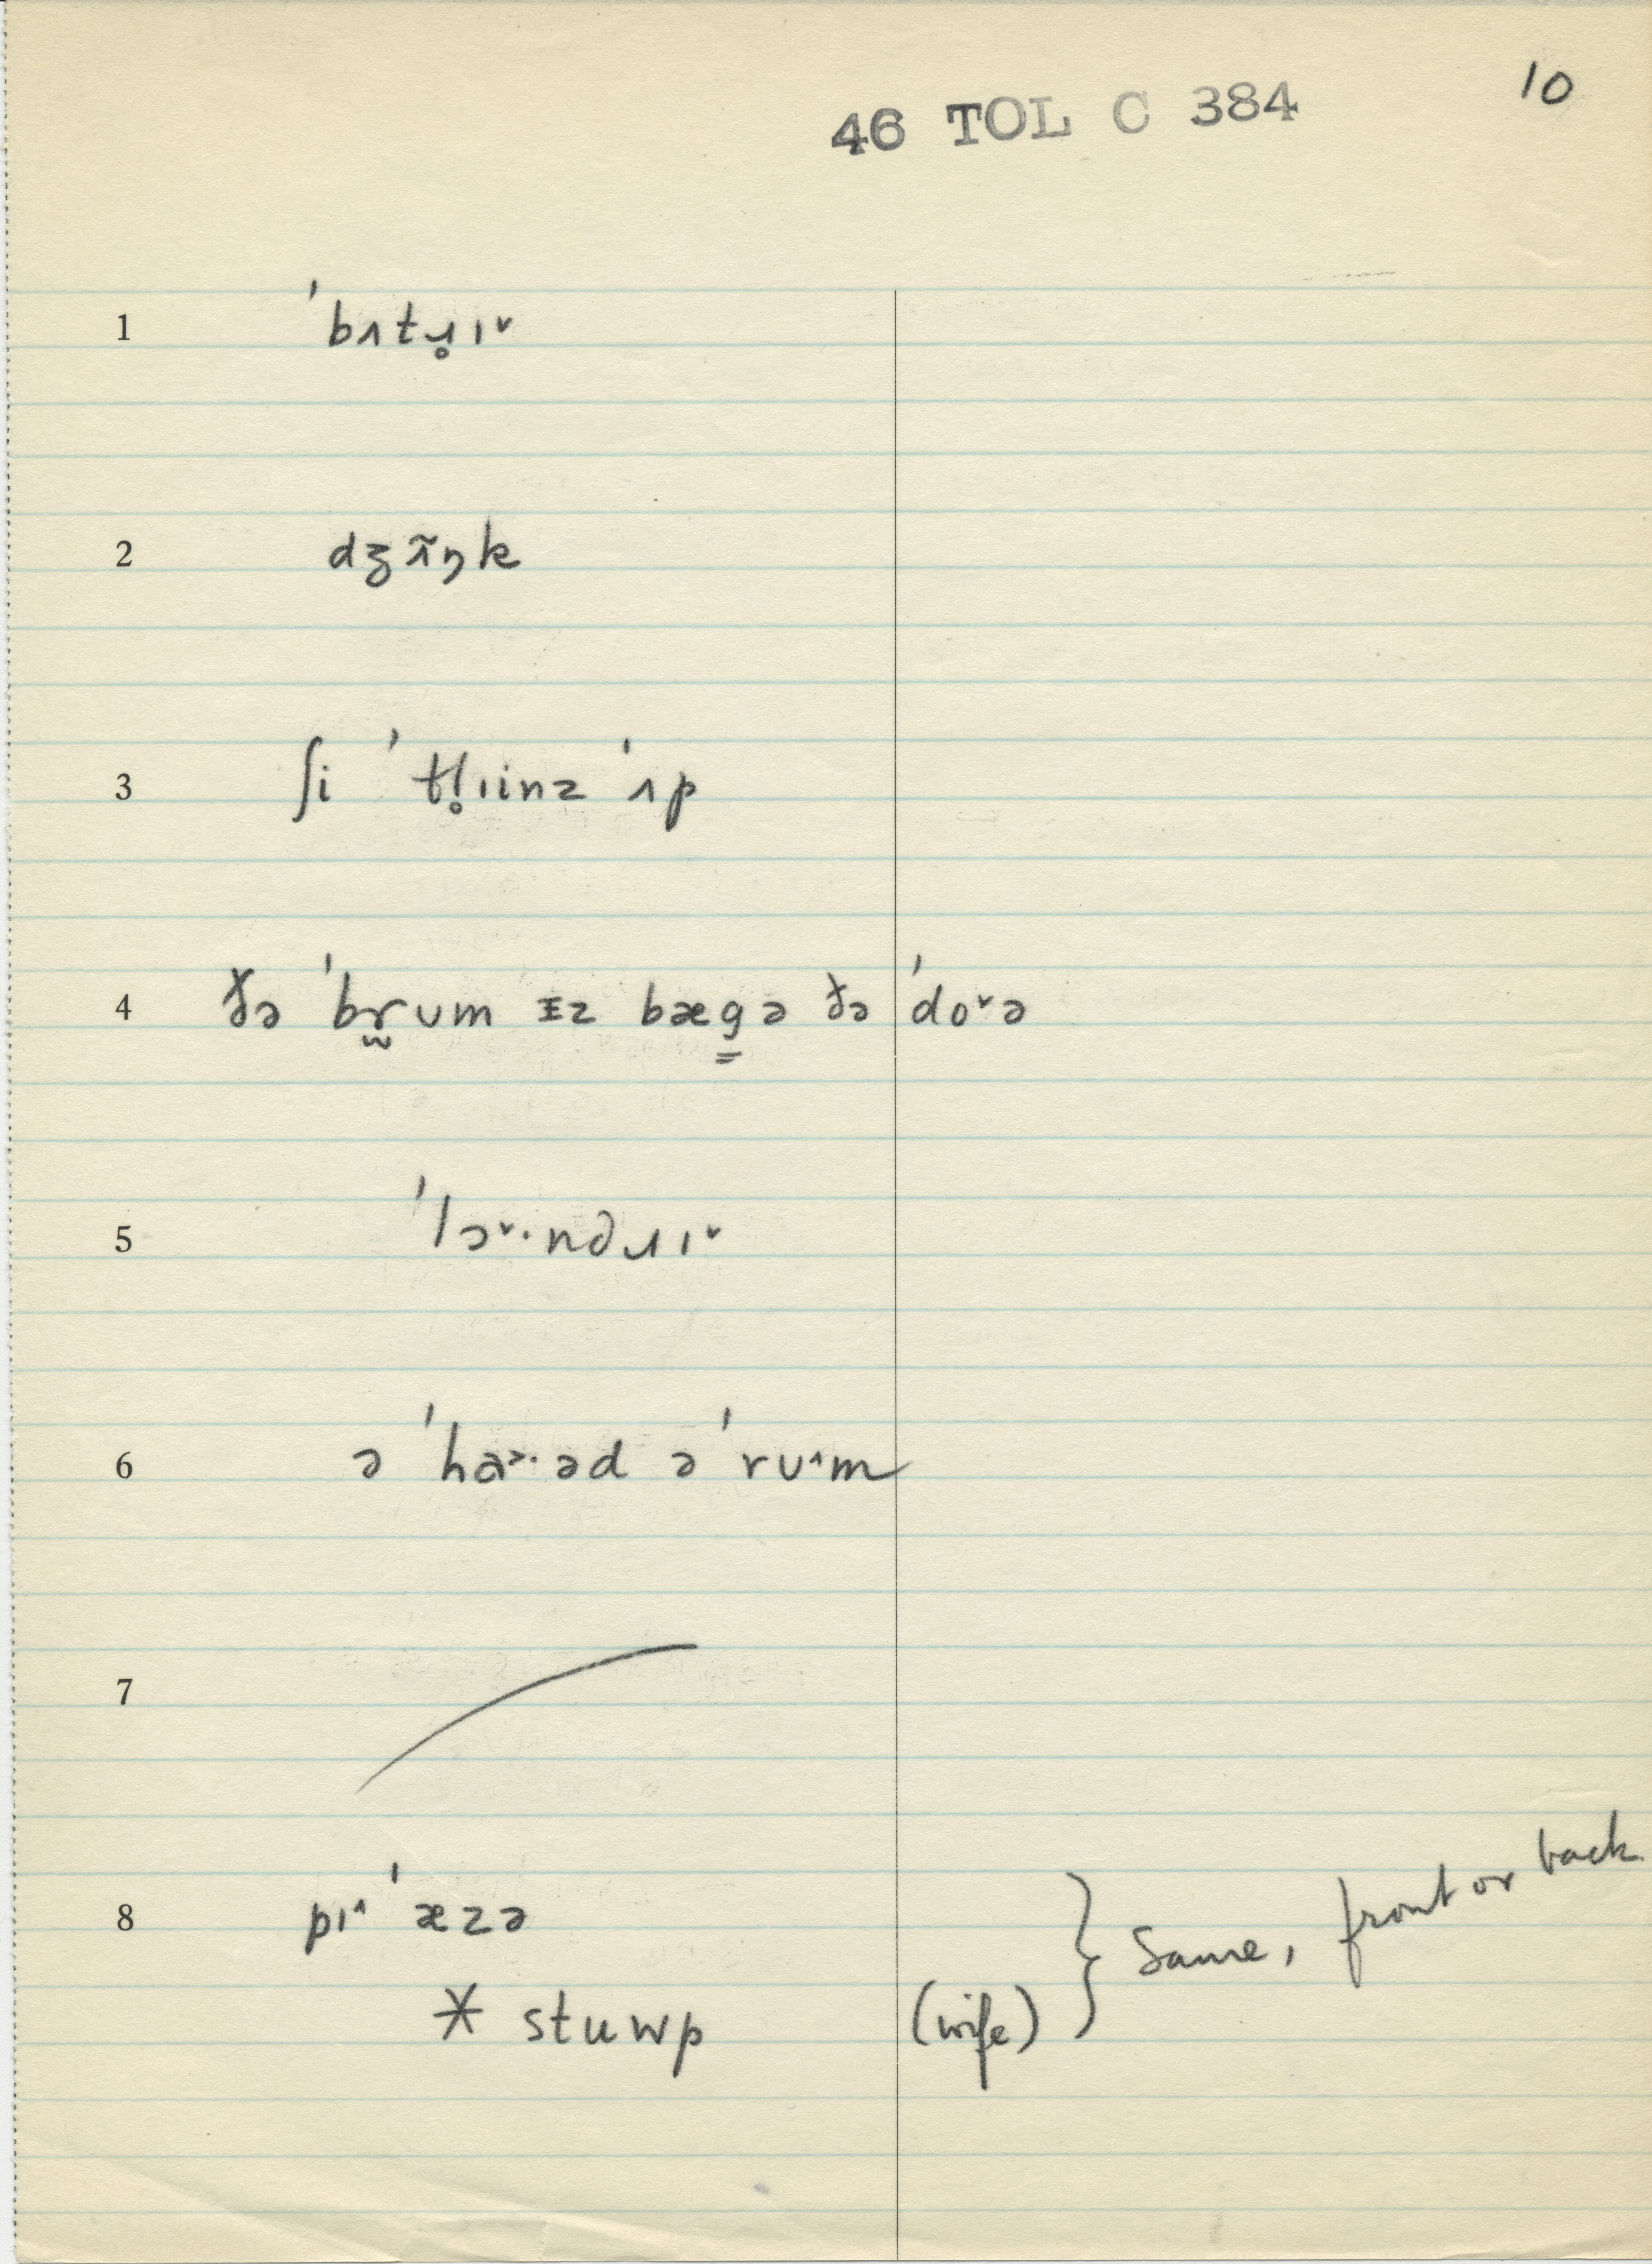 46 TOL C 384
10
1 ˈbʌtɹ̥ɪ˅
2 dʒʌ̃ŋk
3 ʃi ˈtl̥ɪinz ˈʌp
4 ðə ˈbr̪ʊm ɪz bæg̳ə ðə ˈdo˅ə
5 ˈlɔ˅·ndɹɪ˅
6 ə ˈha˃·əd ə ˈrʊ˄m
7
8 pɪ˄ˈæzə
* stuwp (wife) } Same, front or back